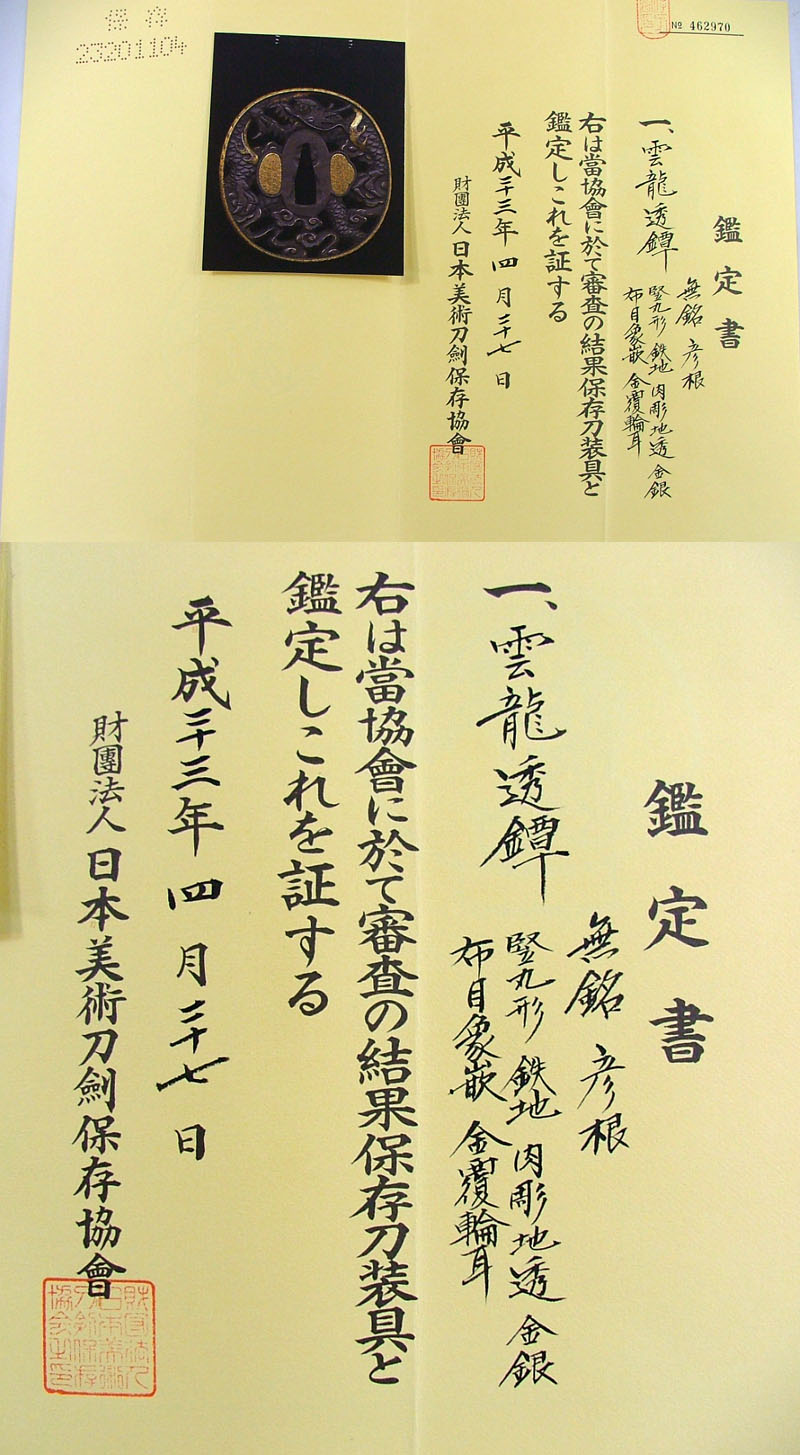 保存
23201104
№ 462970
鑑定書
一、雲龍透鐔
無銘 彦根
竪丸形 鉄地 肉彫地透 金銀
布目象嵌 金覆輪耳
右は當協會に於て審査の結果保存刀装具と
鑑定しこれを証する
平成二十三年 四月 二十七日
財團法人 日本美術刀劍保存協會
鑑定書
一、雲龍透鐔
無銘 彦根
竪丸形 鉄地 肉彫地透 金銀
布目象嵌 金覆輪耳
右は當協會に於て審査の結果保存刀装具と
鑑定しこれを証する
平成二十三年 四月 二十七日
財團法人 日本美術刀劍保存協會